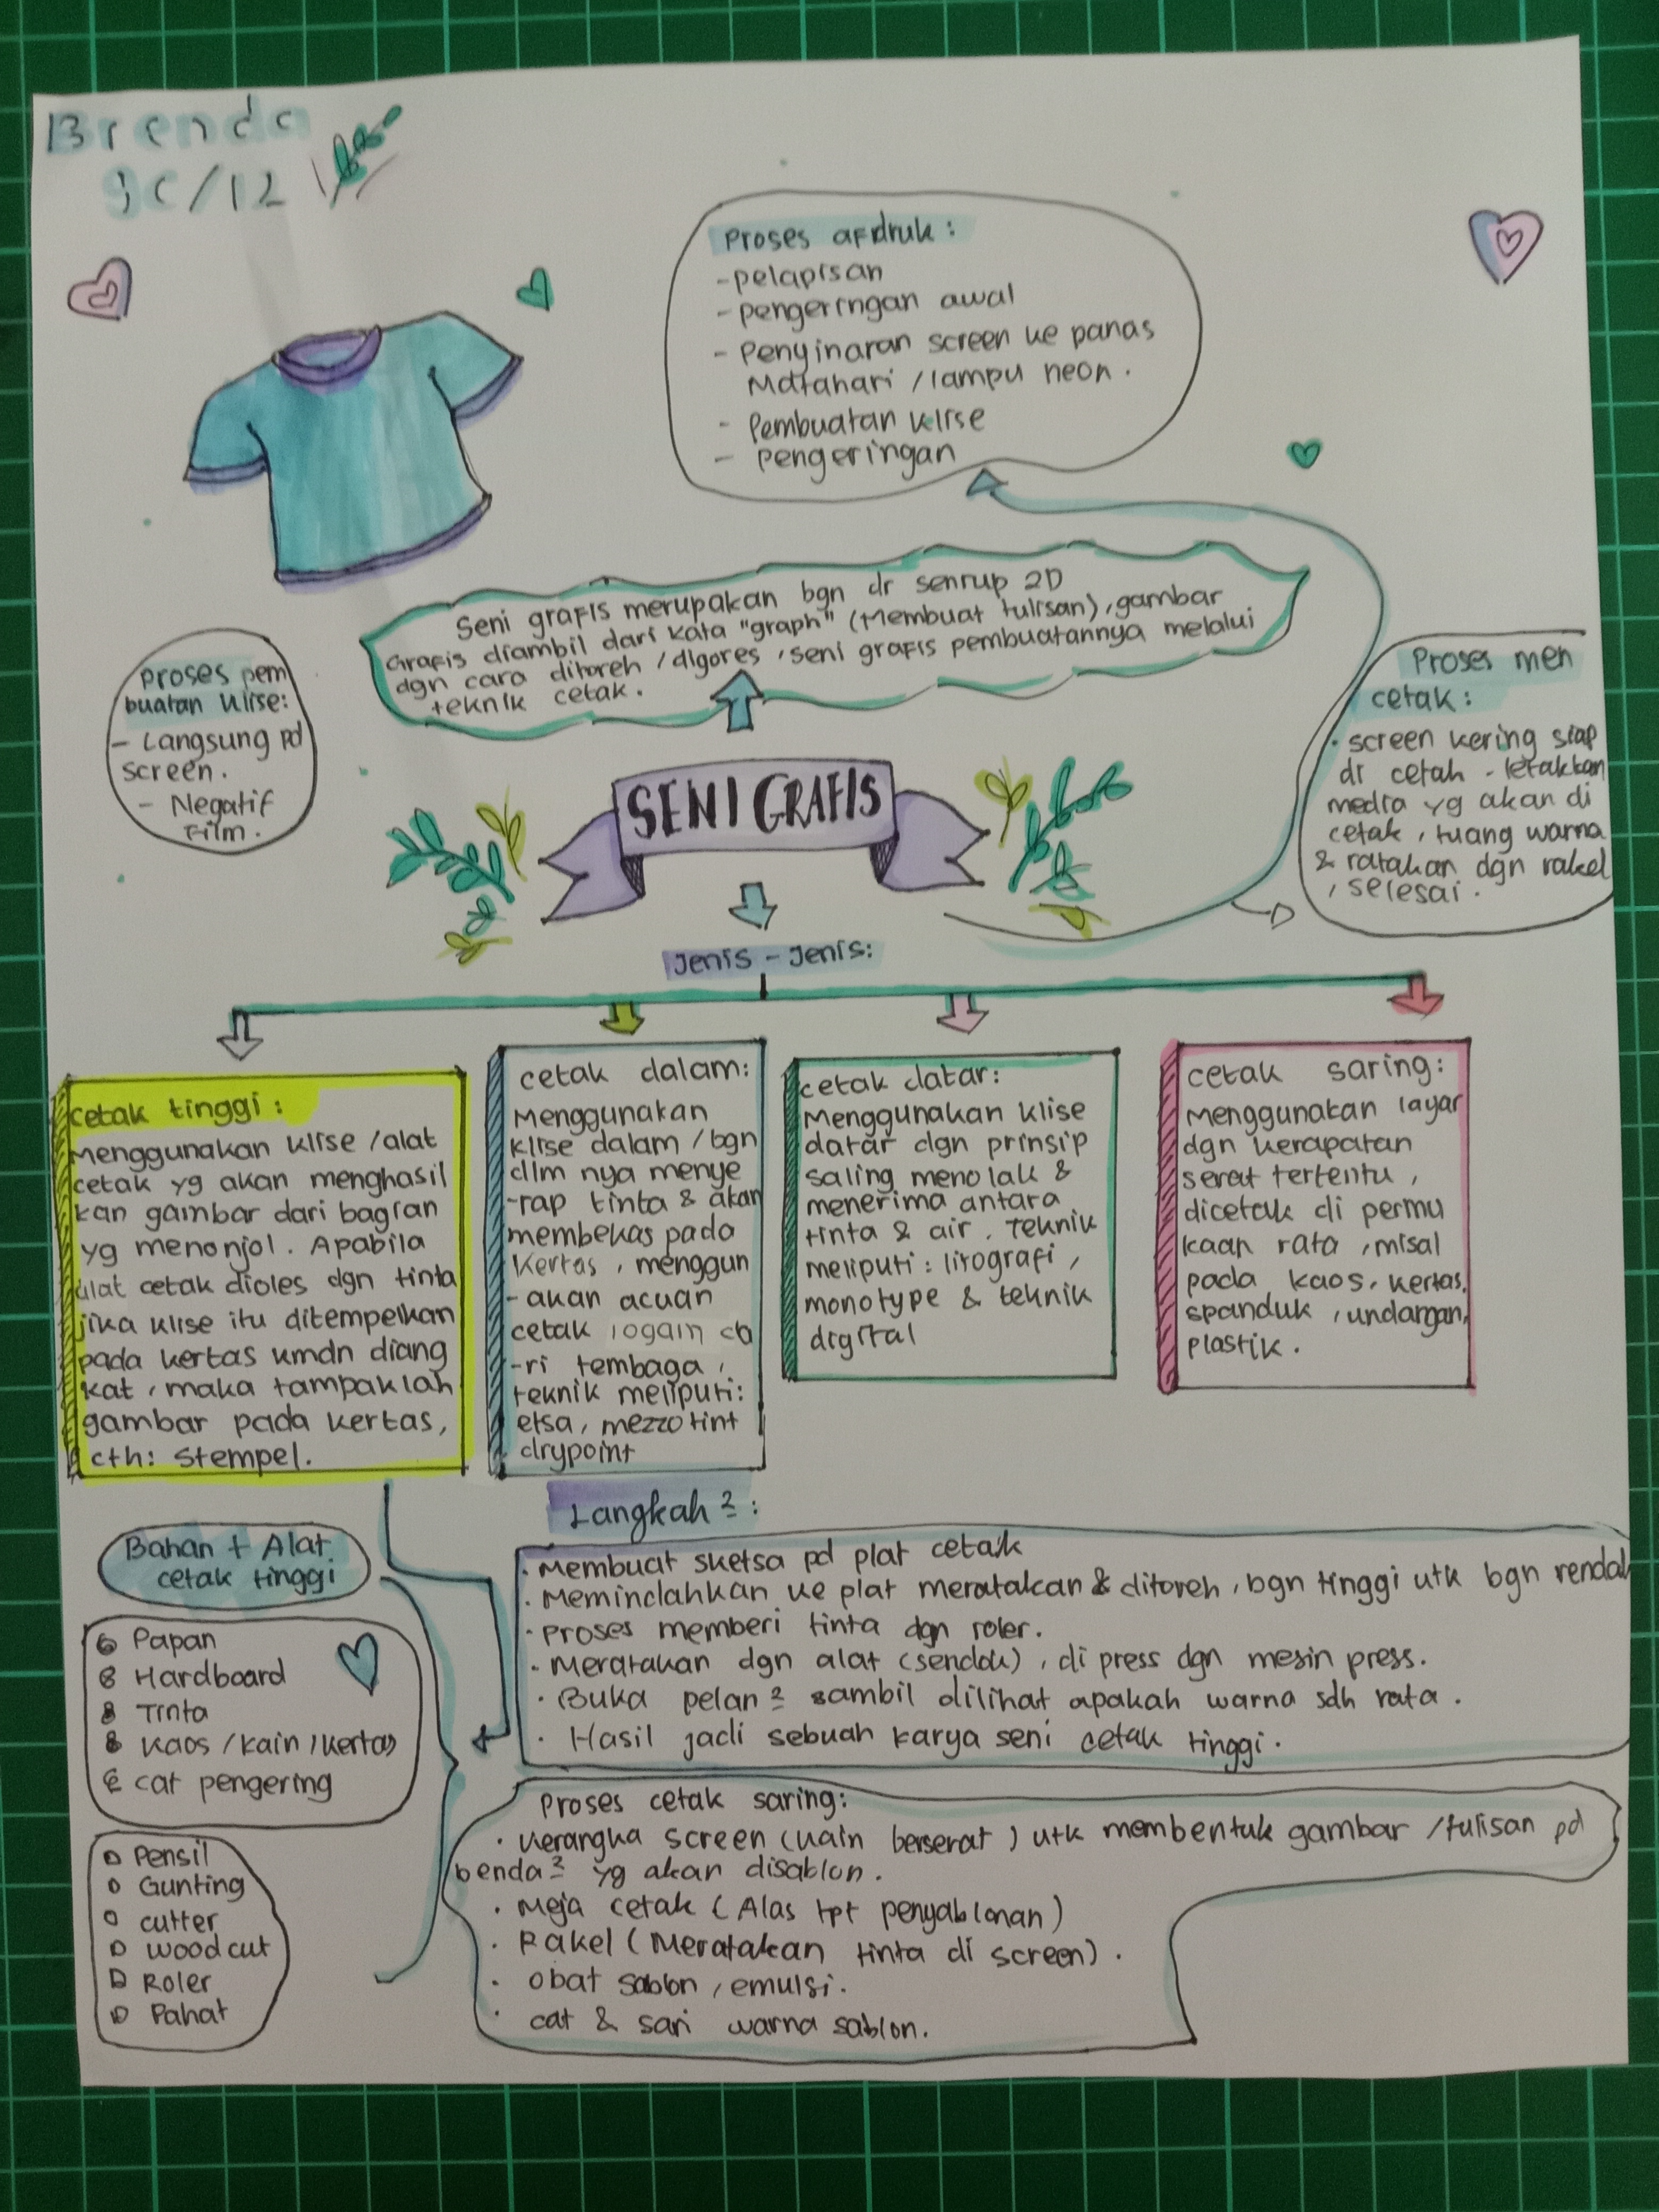 Brenda
9C/12
Proses afdruk:
- pelapisan
- pengeringan awal
- Penyinaran screen ke panas
Matahari / lampu neon.
- Pembuatan klise
- pengeringan
Seni grafis merupakan bgn dr senrup 2D
Grafis diambil dari kata "graph" (Membuat tulisan), gambar
dgn cara ditoreh / digores, seni grafis pembuatannya melalui
teknik cetak.
Proses pem
buatan klise:
- Langsung pd
screen.
- Negatif
Film.
Proses men
cetak:
· screen kering siap
di cetak - letakkan
media yg akan di
cetak, tuang warna
& ratakan dgn rakel
, selesai.
SENI GRAFIS
Jenis - Jenis:
cetak tinggi:
Menggunakan klise / alat
cetak yg akan menghasil
kan gambar dari bagian
yg menonjol. Apabila
alat cetak dioles dgn tinta
jika klise itu ditempelkan
pada kertas kmdn diang
kat, maka tampaklah
gambar pada kertas,
cth: Stempel.
cetak dalam:
Menggunakan
klise dalam / bgn
dlm nya menye
-rap tinta & akan
membekas pada
kertas, menggun
-akan acuan
cetak logam da
-ri tembaga,
teknik meliputi:
etsa, mezzotint
drypoint
cetak datar:
Menggunakan klise
datar dgn prinsip
saling menolak &
menerima antara
tinta & air. Teknik
meliputi: litografi,
monotype & teknik
digital
cetak saring:
Menggunakan layar
dgn kerapatan
serat tertentu,
dicetak di permu
kaan rata, misal
pada kaos, kertas,
spanduk, undangan,
plastik.
Bahan + Alat
cetak tinggi
Papan
Hardboard
Tinta
Kaos / kain / kertas
cat pengering
Pensil
Gunting
cutter
woodcut
Roler
Pahat
Langkah ²:
· Membuat sketsa pd plat cetak
· Memindahkan ke plat meratakan & ditoreh, bgn tinggi utk bgn rendah
· Proses memberi tinta dgn roler.
· Meratakan dgn alat (sendok), di press dgn mesin press.
· Buka pelan ² sambil dilihat apakah warna sdh rata.
· Hasil jadi sebuah karya seni cetak tinggi.
Proses cetak saring:
· Kerangka screen (kain berserat) utk membentuk gambar / tulisan pd
benda ² yg akan disablon.
· Meja cetak (Alas tpt penyablonan)
· Rakel (Meratakan tinta di screen).
· obat sablon, emulsi.
· cat & sari warna sablon.